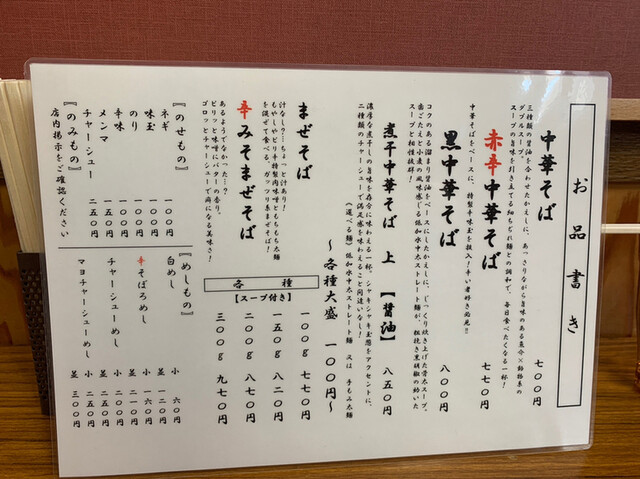 お品書き
中華そば　七〇〇円
三種類の醤油を合わせたかえしに、あっさりながら旨味のある魚介×動物系の
ダブルスープ。スープの旨味を引き立てる細ちぢれ麺との調和で、毎日食べたくなる一杯！
赤辛中華そば　七七〇円
中華そばをベースに、特製辛味噌を投入！辛い者好き必見！！
黒中華そば　八〇〇円
コクのある溜まり醤油をベースにしたかえしに、じっくり炊き上げた骨太スープ。
歯ごたえと小麦の風味感じる低加水中太ストレート麺が、粗挽き黒胡椒の効いた
スープと相性抜群！
煮干中華そば　上　【醤油】　八五〇円
濃厚な煮干しの旨味を存分に味わえる一杯。シャキシャキ玉葱をアクセントに、
二種類のチャーシューで満足感を味わえること間違いなし！
（選べる麺）低加水中太ストレート麺　又は　手もみ太麺
～各種大盛　一〇〇円～
まぜそば
汁なし？…ちょっと汁あり！
もやしやピリ辛特製肉味噌ともちもち太麺
を混ぜて食べる。ガッツリ系まぜそば！
辛みそまぜそば
あるようでなかった…？
ピリッと味噌にバターの香り。
ゴロッとチャーシューで病になる美味さ！
各種
【スープ付き】
一〇〇g　七七〇円
一五〇g　八二〇円
二〇〇g　八七〇円
三〇〇g　九七〇円
『のせもの』
ネギ　一〇〇円
味玉　一〇〇円
のり　一〇〇円
辛味　一〇〇円
メンマ　一五〇円
チャーシュー　二五〇円
『のみもの』
店内掲示をご確認ください
『めしもの』
白めし　小　六〇円
並　一二〇円
辛そぼろめし　小　一六〇円
並　二一〇円
チャーシューめし　小　二〇〇円
並　二五〇円
マヨチャーシューめし　小　二五〇円
並　三〇〇円